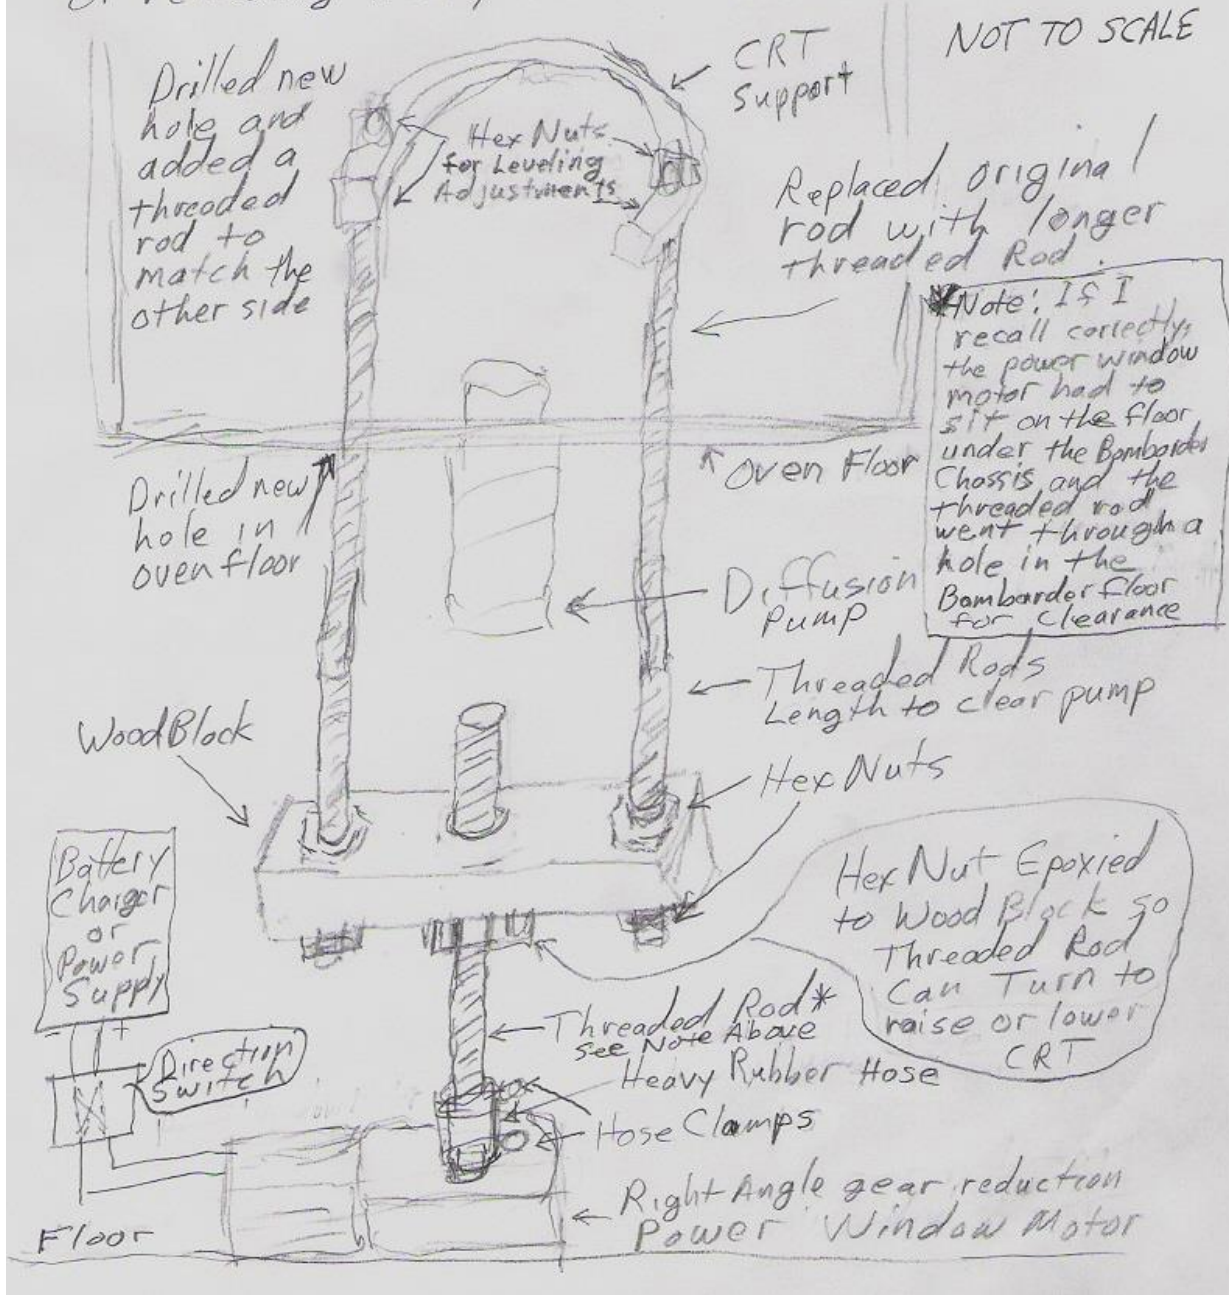 NOT TO SCALE
CRT
Support
Drilled new
hole and
added a
threaded
rod to
match the
other side
Hex Nuts
for Leveling
Adjustments
Replaced original
rod with longer
threaded Rod.
*Note: If I
recall correctly,
the power window
motor had to
sit on the floor
under the Bombarder
Chassis and the
threaded rod
went through a
hole in the
Bombarder floor
for Clearance
Oven Floor
Drilled new
hole in
oven floor
Diffusion
Pump
Threaded Rods
Length to clear pump
Wood Block
Hex Nuts
Battery
Charger
or
Power
Supply
- +
Direction
Switch
Hex Nut Epoxied
to Wood Block so
Threaded Rod
Can Turn to
raise or lower
CRT
Threaded Rod*
See Note Above
Heavy Rubber Hose
Hose Clamps
Right Angle gear reduction
Power Window Motor
Floor